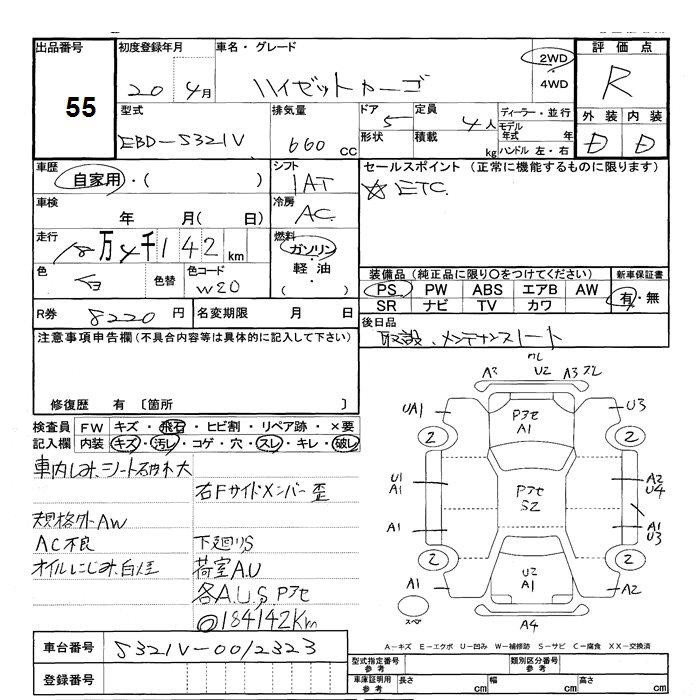 出品番号 初度登録年月 車名・グレード 2WD・4WD 評価点
55 20 4月 ハイゼットカーゴ R
型式 排気量 ドア 定員 ディーラー・並行 外装 内装
EBD-S321V 660cc 5 4人 モデル年式 年 D D
形状 積載 kg ハンドル 左・右
車歴 シフト セールスポイント（正常に機能するものに限ります）
自家用・（ ） 1AT ☆ETC
車検 冷房
年 月（ 日） AC
走行 燃料
18万4千142km ガソリン・軽油・（ ）
装備品（純正品に限り○をつけてください） 新車保証書
色 色替 色コード
白 W20
PS PW ABS エアB AW 有・無
SR ナビ TV カワ
R券 8220円 名変期限 月 日
後日品
取説、メンテナンスノート
注意事項申告欄（不具合内容等は具体的に記入して下さい）
修復歴 有 〔箇所 〕
検査員記入欄 FW キズ・飛石・ヒビ割・リペア跡・×要
内装 キズ・汚レ・コゲ・穴・スレ・キレ・破レ
車内しみ、シート破れ大
右Fサイドメンバー歪
規格外AW
AC不良 下廻りS
オイルにじみ白煙 荷室A.U
各A.U.S Pアセ
@184142Km
車台番号 S321V-0012323
登録番号
A3 U2 A3
UA1 Pアセ A1 U3
2 2
U1 A1 Pアセ S2 A2 U4
A1 A1 U3
2 2
A1 U2 A1 A2
スペア A4
A－キズ E－エクボ U－凹み W－補修跡 S－サビ C－腐食 XX－交換済
型式指定番号 参考 類別区分番号 参考
車庫証明用 参考 長さ cm 幅 cm 高さ cm